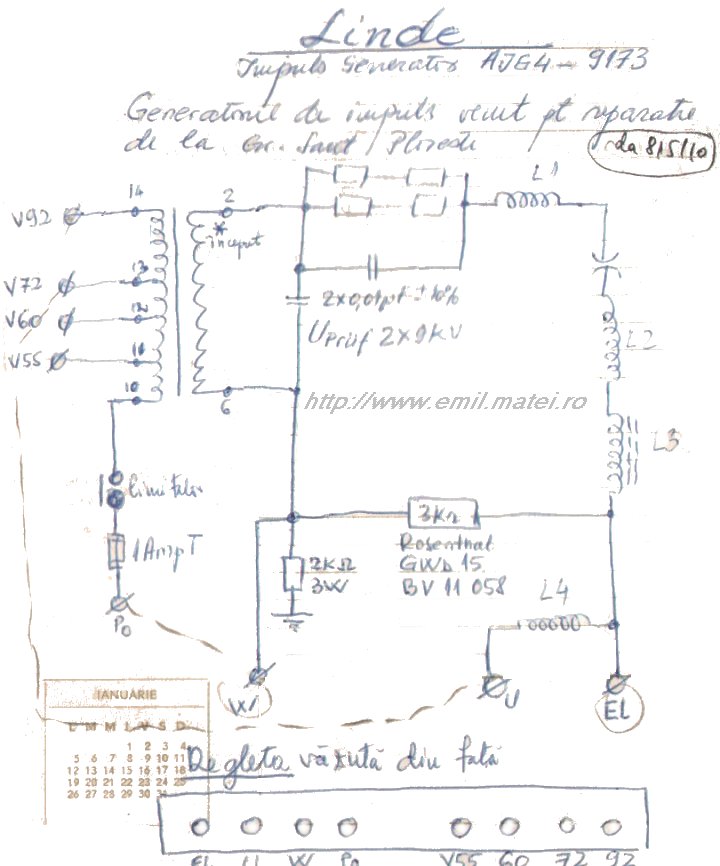 Linde
Impuls Generator AJG4 - 9173
Generatorul de impuls venit pt reparatie
de la
da 8/5/10
L1
14
2
V92
*
inceput
3
V72
2x0,01µF ±10%
12
V60
UPrüf 2x9KV
L2
V55
10
6
http://www.emil.matei.ro
L3
limitator
3KΩ
1AmpT
2KΩ
3W
Rosenthal
GWD 15
BV 11 058
L4
P0
W
U
EL
IANUARIE
L M M J V S D
1 2 3 4
5 6 7 8 9 10 11
12 13 14 15 16 17 18
19 20 21 22 23 24 25
26 27 28 29 30 31
Regleta văzută din față
EL U W P0 V55 60 72 92